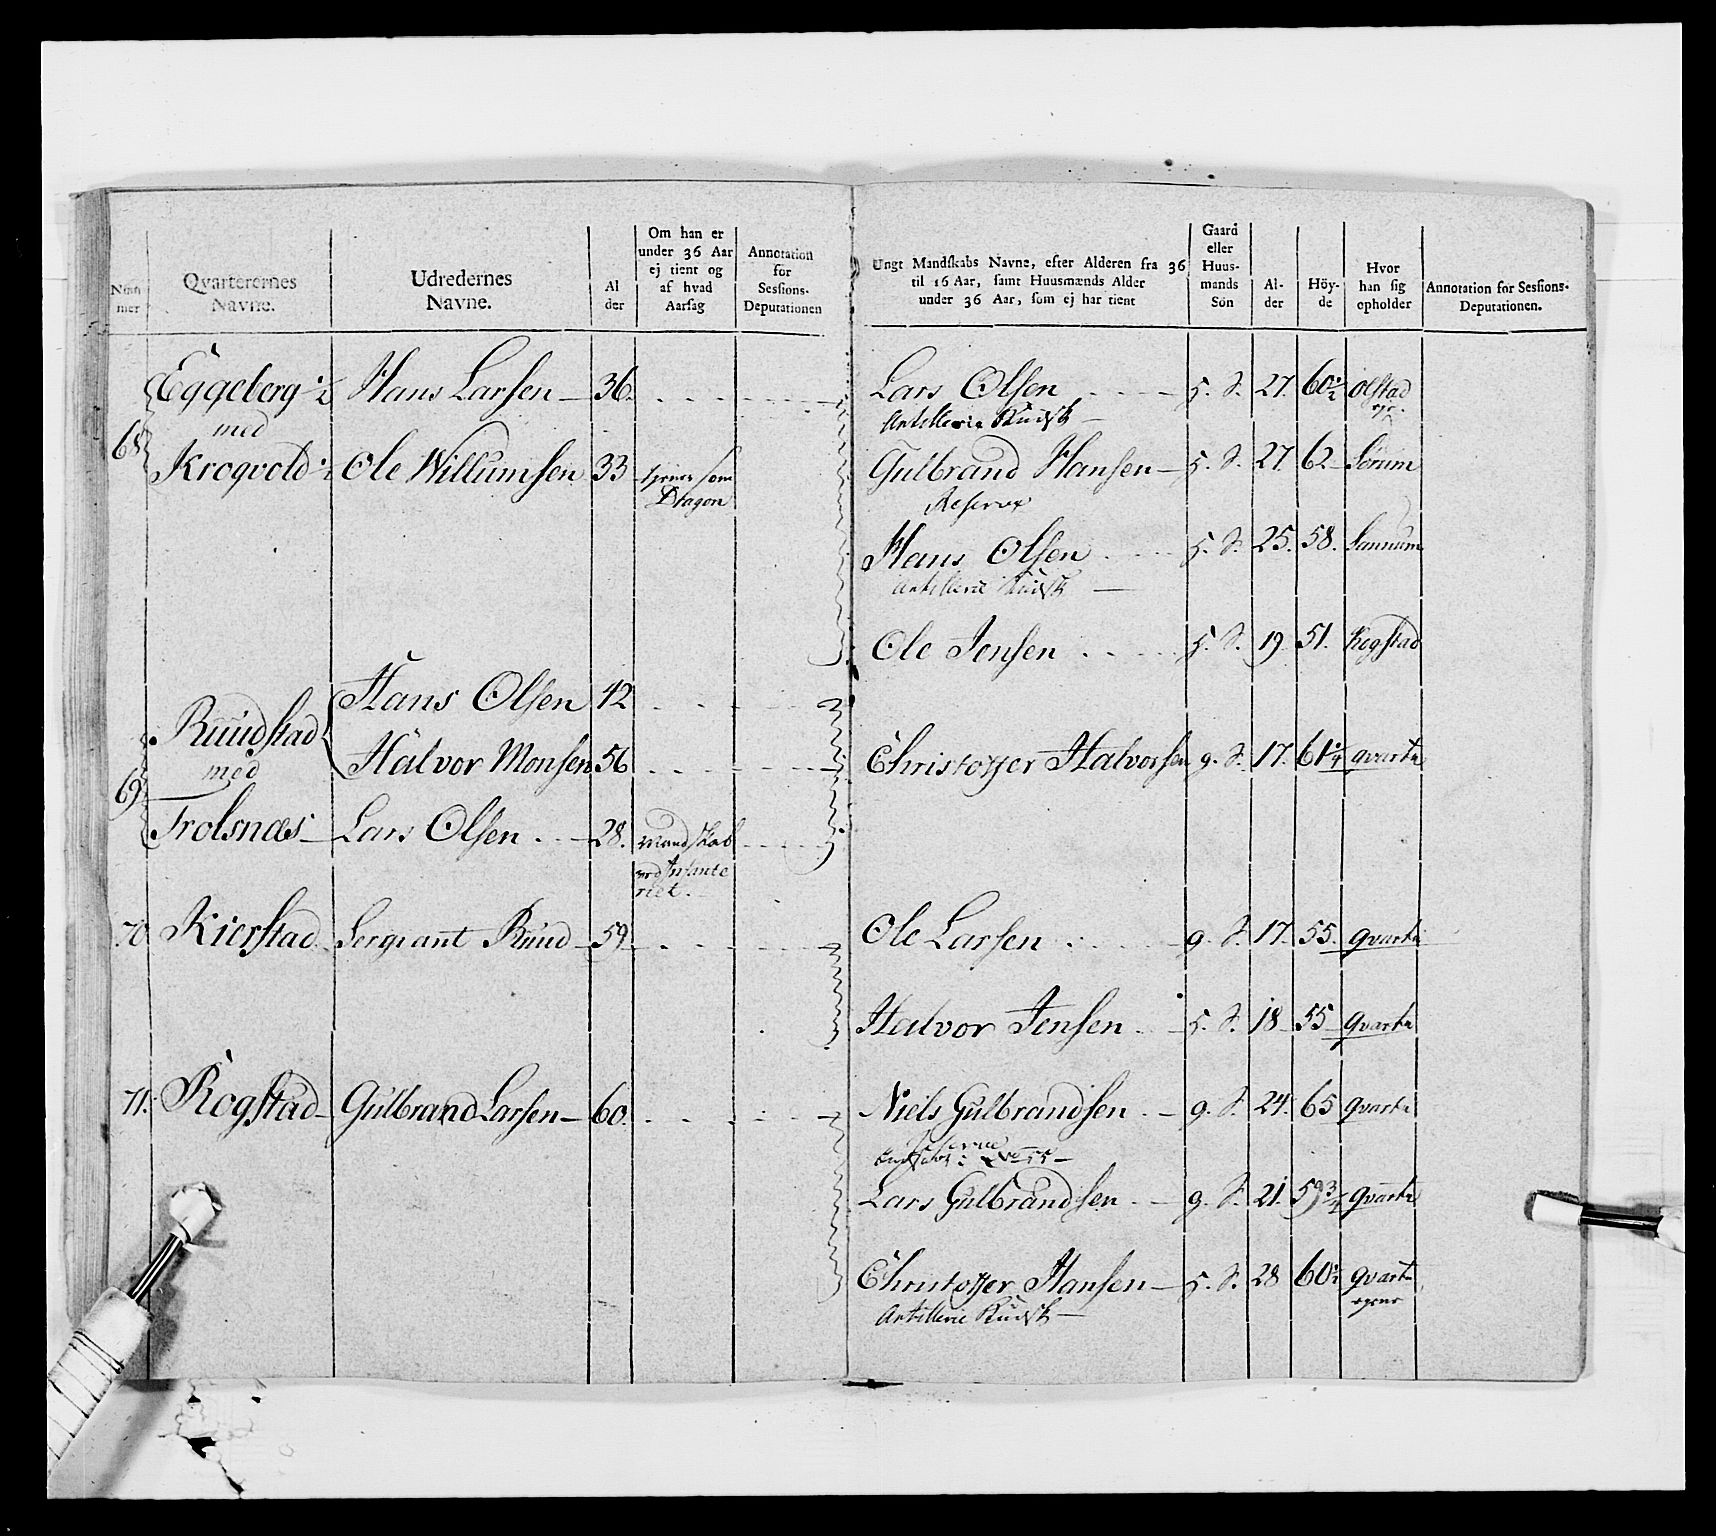 Num
mer
Qvarterernes
Navne.
Udredernes
Navne.
Al
der
Om han er
under 36 Aar
ej tient og
af hvad
Aarsag
Annotation
for
Sessions-
Deputationen
Ungt Mandskabs Navne, efter Alderen fra 36
til 16 Aar, samt Huusmænds Alder
under 36 Aar, som ej har tient
Gaard
eller
Huus-
mands
Søn
Al-
der
Höy-
de
Hvor
han sig
opholder
Annotation for Sessions-
Deputationen.
68 Eggeberg Hans Larsen 36. Lars Olsen 5. S. 27. 60 1/2 Olstad
med Artillerie Kudsk
Krogvold Ole Willumsen 33 tjener som Gulbrand Hansen 5. S. 27 62 Sørum
Dragon Reserve
Hans Olsen 5. S. 25. 58. Sannum
Artillerie Kudsk
Ole Jensen 5. S. 19 51. Rogstad
69 Ruudstad Hans Olsen 42
med Halvor Monsen 56 Christoffer Halvorsen g. S. 17. 61 1/4 qvarte
Trolsnæs Lars Olsen 28. Mandskab
ved Infante
riet.
70 Kierstad Sergiant Ruud 59 Ole Larsen g. S. 17. 55. qvarte
Halvor Jensen 5. S. 18 55 qvarte
71. Rogstad Gulbrand Larsen 60. Niels Gulbrandsen g. S. 24. 65 qvarte
Lars Gulbrandsen g. S. 21. 59 3/4 qvarte
Christoffer Hansen 5. S. 28 60 1/2 qvarte
Artillerie Kudsk